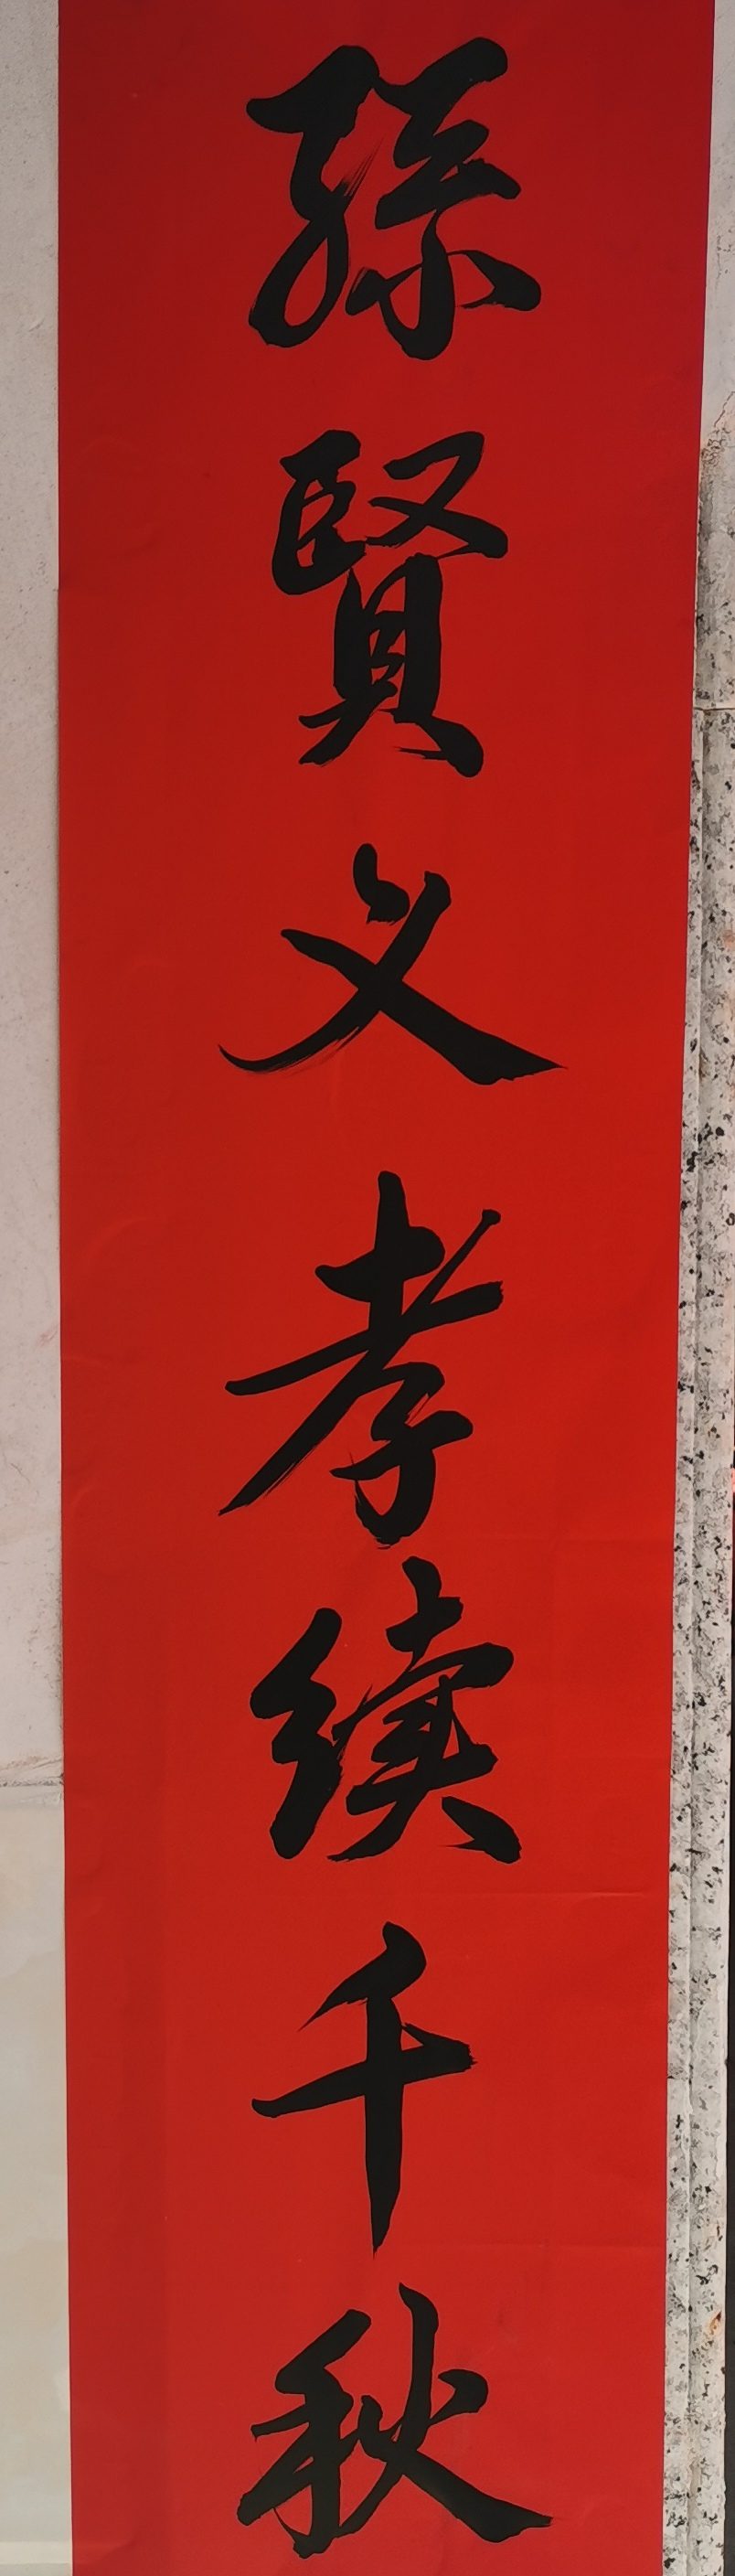 孫賢文孝續千秋